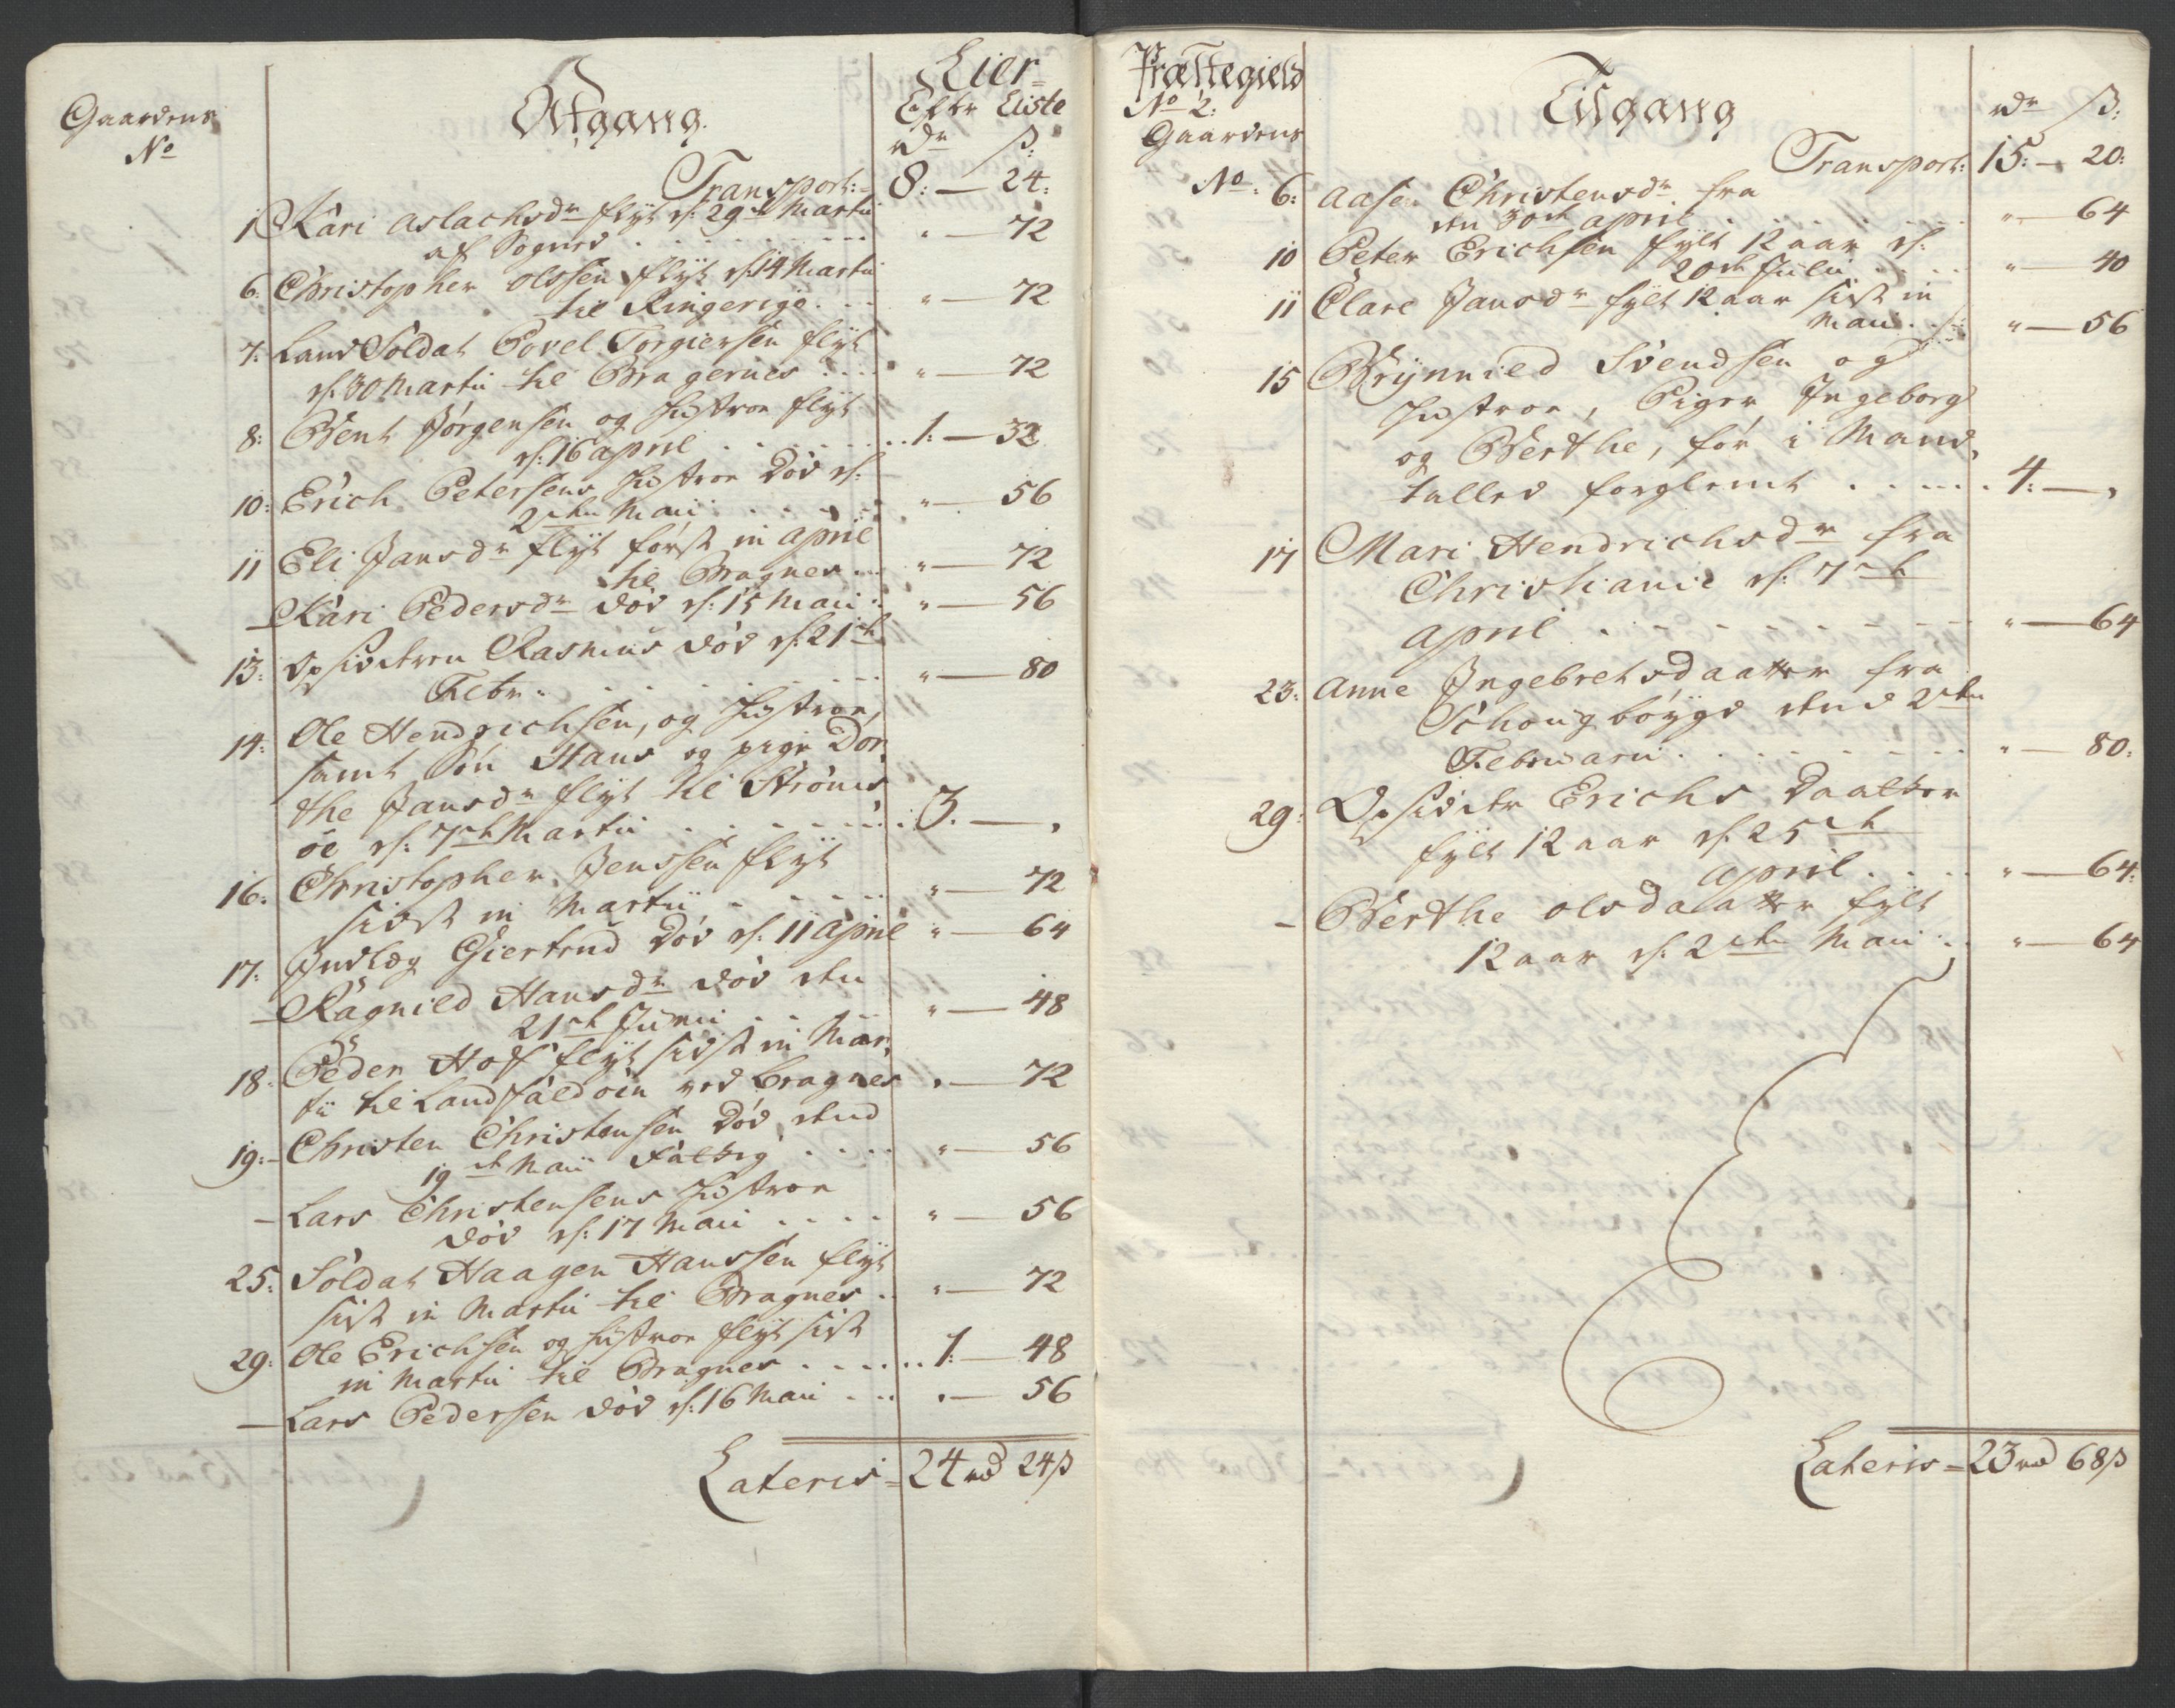 Eier-
Gaardens
No
Afgang.
Efter Liste
rdr ß:
Transport:- 8:-24:
1 Kari Aslachsdr flyt d: 29de Martii
af Sognet . . . . . . . . " - 72
6: Christopher Olssen flyt d: 14 Martii
til Ringerige . . . " - 72
7: Land Soldat Povel Torgiersen flyt
d: 30 Martii til Bragernes . . . . " - 72
8: Bent Jörgensen og Hustroe flyt
d: 16 april . . . . . . . . 1:-32
10: Erich Petersens Hustroe Död d:
2den Maii . . . . . " - 56
11 Eli Jansdr flyt först in april
til Bragnes . . . " - 72
- Kari Pedersdr död d: 15 Maii . . " - 56
13: Opsidderen Rasmus död d: 21de
Febr: . . . . . . . . " - 80
14: Ole Hendrichsen, og Hustroe,
samt Sön Hans og pige Dor
the Jansdr flyt til Ströms
öe d: 7de Martii . . . . . . . 3.- ,
16. Christopher Jenssen flyt
sidst in Martii . . . . . " - 72
17: Indlæg Giertrud Död d: 11 april " - 64
- Ragnild Hansdr död den
21de Junii . . . . " - 48
18: Peder Hoff flyt sidst in Mar,
tii til Landfaldöen ved Bragnes " - 72
19:- Christen Christensen Död dend
19de Maii Fattig . . . . " - 56
- Lars Christensens Hustroe
död d: 17 Maii . . . . " - 56
25: Soldat Haagen Hanssen flyt
sist in Martii til Bragnes . . " - 72
29: Ole Erichsen og Hustroe flyt sist
in Martii til Bragnes . . . . . . 1:- 48
- Lars Pedersen död d: 16 Maii . . . " - 56
Lateris = 24 rd 24ß
Præstegield
No 2:
Gaardens
No:
Tilgang
rdr ß:
Transport: 15:- 20:
6: Aase Christensdr fra
den 30de april . . . . . . . . " - 64
10 Peter Erichsen fylt 12 aar d:
20de Julii . . . . " - 40
11 Clare Jansdr fylt 12 aar sist in
Maii . . " - 56
15 Brynnild Svendsen og
Hustroe, Piger Ingeborg
og Berthe, for i Mand,
tallet forglemt . . . . . . 4:- ,
17 Mari Hendrichsdr fra
Christiania d: 7de
april . . . . . . . . . " - 64
23: Anne Ingebretsdaatter fra
Schougböygd dend 2den
Februarii . . . . . . . . . " - 80:
29: Opsidder Erichs Daatter
fylt 12 aar d: 25de
april . . . . " - 64:
- Berthe Olsdaatter fylt
12 aar d: 2den Maii . . " - 64
Lateris = 23 rd 68ß